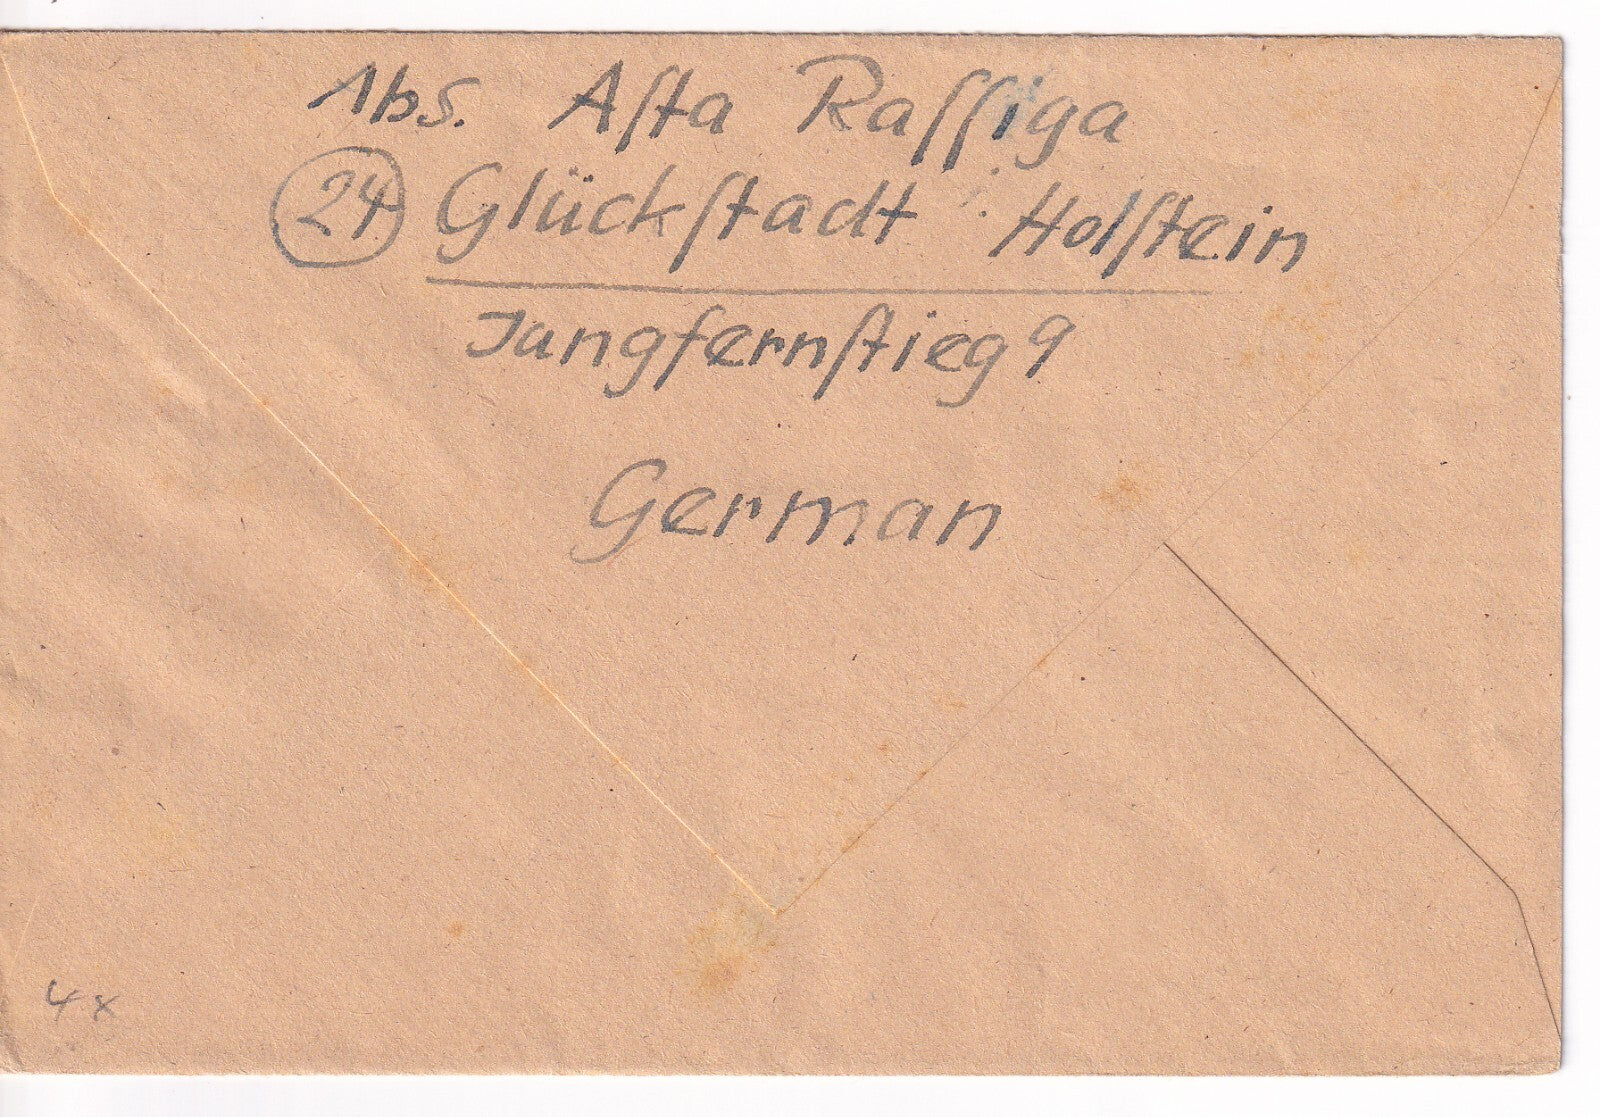 Abs. Aſta Raſſiga
24 Glückſtadt Holſtein
Jungfernſtieg 9
German
4x